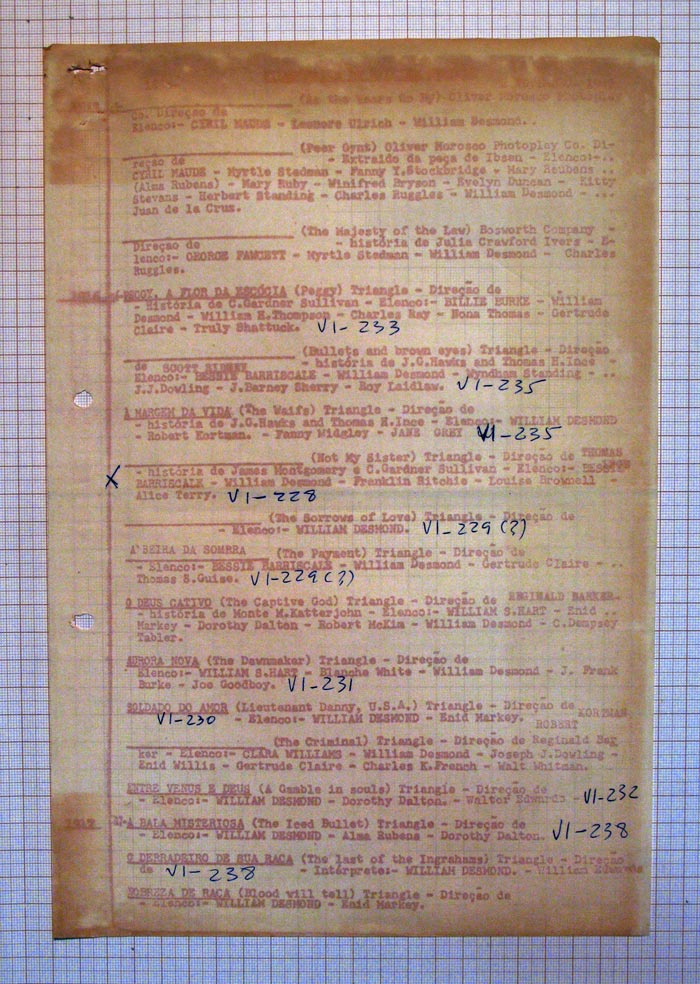 (As the years go by) Oliver Morosco Photoplay
Co. Direção de
Elenco:- CYRIL MAUDE - Leonore Ulrich - William Desmond..
(Peer Gynt) Oliver Morosco Photoplay Co. Di-
reção de - Extraido da peça de Ibsen - Elenco:-..
CYRIL MAUDE - Myrtle Stedman - Fanny Y.Stockbridge - Mary Reubens ..
(Alma Rubens) - Mary Ruby - Winifred Bryson - Evelyn Duncan - Kitty
Stevans - Herbert Standing - Charles Ruggles - William Desmond - ...
Juan de la Cruz.
(The Majesty of the Law) Bosworth Company -
Direção de - história de Julia Crawford Ivers - E-
lenco:- GEORGE FAWCETT - Myrtle Stedmann - William Desmond - Charles
Ruggles.
PEGGY, A FLOR DA ESCÓCIA (Peggy) Triangle - Direção de
- História de C.Gardner Sullivan - Elenco:- BILLIE BURKE - William
Desmond - William H.Thompson - Charles Ray - Nona Thomas - Gertrude
Claire - Truly Shattuck. VI-233
(Bullets and brown eyes) Triangle - Direção
de SCOTT SIDNEY - história de J.G.Hawks and Thomas H.Ince -
Elenco:- BESSIE BARRISCALE - William Desmond - Wyndham Standing - ..
J.J.Dowling - J.Barney Sherry - Roy Laidlaw. VI-235
À MARGEM DA VIDA (The Waifs) Triangle - Direção de
- história de J.G.Hawks and Thomas H.Ince - Elenco:- WILLIAM DESMOND
- Robert Kortman. - Fanny Widgley - JANE GREY VI-235
(Not My Sister) Triangle - Direção de THOMAS
X - história de James Montgomery e C.Gardner Sullivan - Elenco:- BESSIE
BARRISCALE - William Desmond - Franklin Ritchie - Louise Brownell -
Alice Terry. VI-228
(The Sorrows of Love) Triangle - Direção de
- Elenco:- WILLIAM DESMOND. VI-229(?)
A BEIRA DA SOMBRA (The Payment) Triangle - Direção de
- Elenco:- BESSIE BARRISCALE - William Desmond - Gertrude Claire - ..
Thomas S.Guise. VI-229(?)
O DEUS CATIVO (The Captive God) Triangle - Direção de REGINALD BARKER-
- história de Monte M.Katterjohn - Elenco:- WILLIAM S.HART - Enid ..
Markey - Dorothy Dalton - Robert McKim - William Desmond - C.Dempsey
Tabler.
AURORA NOVA (The Dawnmaker) Triangle - Direção de
Elenco:- WILLIAM S.HART - Blanche White - William Desmond - J. Frank
Burke - Joe Goodboy. VI-231
SOLDADO DO AMOR (Lieutenant Danny, U.S.A.) Triangle - Direção de
VI-230 - Elenco:- WILLIAM DESMOND - Enid Markey. - ROBERT KORTMAN
(The Criminal) Triangle - Direção de Reginald Bar
ker - Elenco:- CLARA WILLIAMS - William Desmond - Joseph J.Dowling -
Enid Willis - Gertrude Claire - Charles K.French - Walt Whitman.
ENTRE VENUS E DEUS (A Gamble in souls) Triangle - Direção de
- Elenco:- WILLIAM DESMOND - Dorothy Dalton. - Walter Edwards - VI-232
1917 A BALA MISTERIOSA (The Iced Bullet) Triangle - Direção de
- Elenco:- WILLIAM DESMOND - Alma Rubens - Dorothy Dalton. VI-238
O DERRADEIRO DE SUA RAÇA (The last of the Ingrahams) Triangle - Direção
de VI-238 - Intérprete:- WILLIAM DESMOND. - William Edwards
NOBREZA DE RAÇA (Blood will tell) Triangle - Direção de
- Elenco:- WILLIAM DESMOND - Enid Markey.